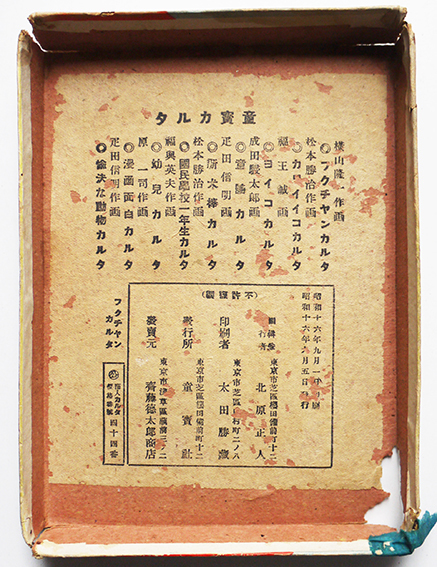 童寶カルタ
横山隆一作画
◎フクチヤンカルタ
松本勝治作画
◎カワイイコカルタ
王誠画
◎ヨイコカルタ
成田駿太郎画
◎童謡カルタ
疋田信明画
◎積木棒カルタ
松本勝治作画
◎國民學校一年生カルタ
福與英夫作画
◎幼兒カルタ
原一司作画
◎漫画面白カルタ
疋田信明作画
◎愉快な動物カルタ
不許複製
昭和十六年九月一日印刷
昭和十六年九月五日発行
東京市芝區櫻田備前町十二
編輯兼発行者 北原正人
東京市芝區田村町二ノ八
印刷者 太田勝蔵
東京市芝區櫻田備前町十二
發行所 童寶社
東京市淺草區蔵前三ノ二
發賣元 齊藤德太郎商店
フクチヤンカルタ
四十四番